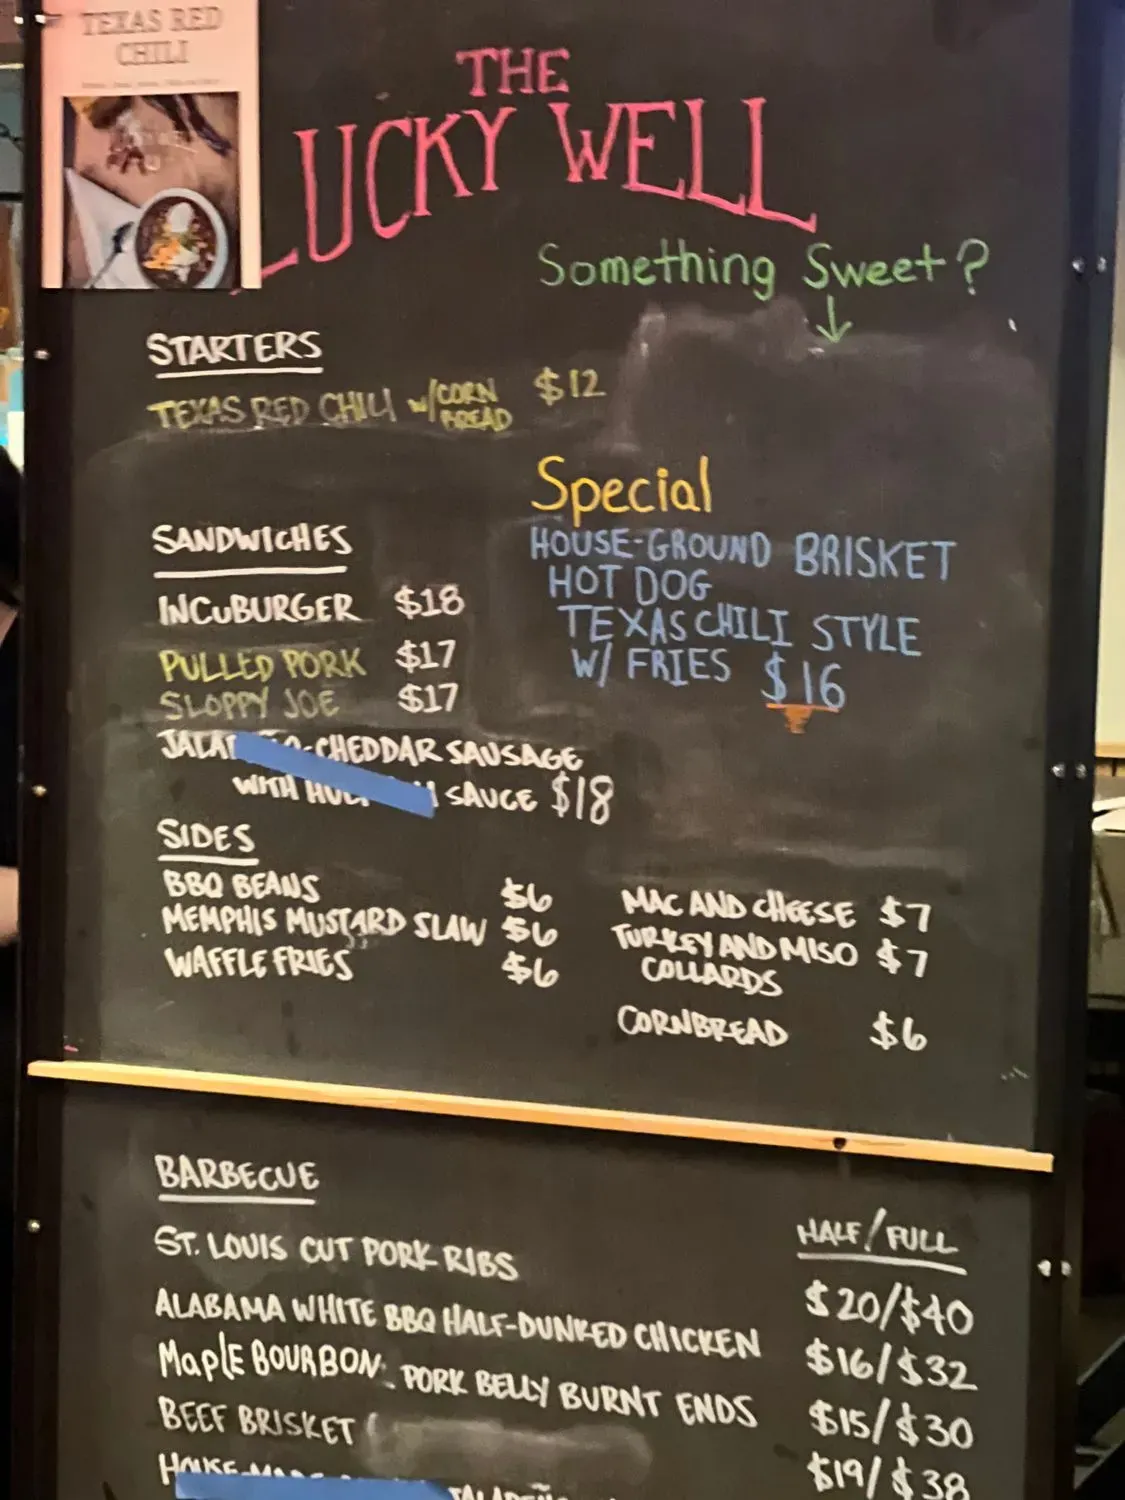 TEXAS RED
CHILI
THE
LUCKY WELL
Something Sweet?
STARTERS
TEXAS RED CHILI W/CORN BREAD $12
Special
HOUSE-GROUND BRISKET
HOT DOG
TEXAS CHILI STYLE
W/ FRIES $16
SANDWICHES
INCUBURGER $18
PULLED PORK $17
SLOPPY JOE $17
CHEDDAR SAUSAGE
WITH SAUCE $18
SIDES
BBQ BEANS $6
MEMPHIS MUSTARD SLAW $6
WAFFLE FRIES $6
MAC AND CHEESE $7
TURKEY AND MISO $7
COLLARDS
CORNBREAD $6
BARBECUE
HALF/FULL
ST. LOUIS CUT PORK RIBS $20/$40
ALABAMA WHITE BBQ HALF-DUNKED CHICKEN $16/$32
MAPLE BOURBON PORK BELLY BURNT ENDS $15/$30
BEEF BRISKET $19/$38